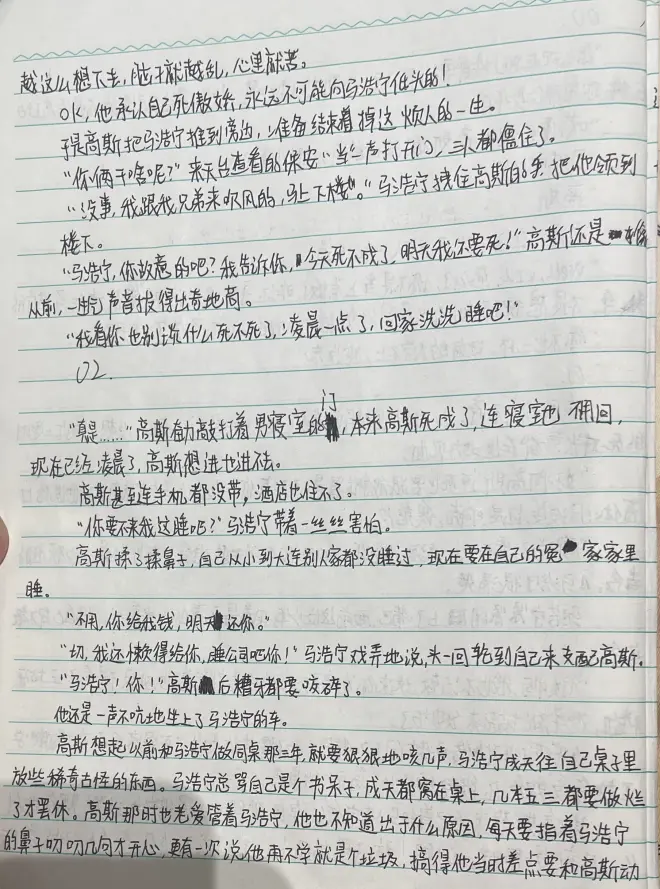 越这么想下去，脑子就越乱，心里就苦。
OK，他承认自己死傲娇，永远不可能向马浩宁低头的！
于是高斯把马浩宁推到旁边，准备结束着掉这烦人的一生。
“你俩干啥呢？”来天台查看的保安“当”一声打开门，三人都僵住了。
“没事，我跟我兄弟来吹风的，马上下楼。”马浩宁拽住高斯的手把他领到
楼下。
“马浩宁，你故意的吧？我告诉你，今天死不成了，明天我还要死！”高斯还是像
从前，一生气声音拔得出奇地高。
“我看你也别说什么死不死了，凌晨一点了，回家洗洗睡吧！”
02.
“真是……”高斯奋敲打着男寝室的门，本来高斯死成了，连寝室也不用回，
现在已经凌晨了，高斯想进也进不去。
高斯甚至连手机都没带，酒店也住不了。
“你要不来我这睡吧？”马浩宁带着一丝丝害怕。
高斯揉了揉鼻子，自己从小到大连别人家都没睡过，现在要在自己的冤家家里
睡。
“不用，你给我钱，明天还你。”
“切，我还懒得给你，睡公司吧你！”马浩宁戏弄地说，头一回轮到自己来支配高斯。
“马浩宁！你！”高斯后糟牙都要咬碎了。
他还是一声不吭地坐上了马浩宁的车。
高斯想起以前和马浩宁做同桌那三年，就要狠狠地咳几声，马浩宁成天往自己桌子里
放些稀奇古怪的东西。马浩宁总骂自己是个书呆子，成天都窝在桌上，几本五三都要做烂
了才罢休。高斯那时也老爱管着马浩宁，他也不知道出于什么原因，每天要指着马浩宁
的鼻子叨叨几句才开心，更有一次说他再不学就是个垃圾，搞得他当时差点要和高斯动